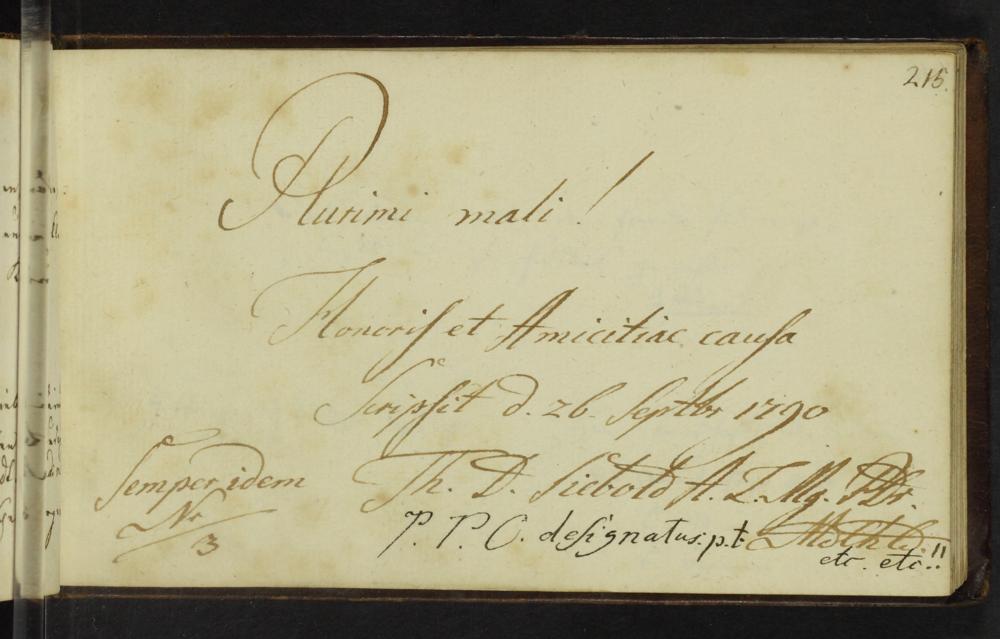 215.
Plurimi mali!
Honoris et Amicitiae causa
Scripsit d. 26. Septbr 1790
Semper idem
Th. D. Siebold A. L. Mg.
Nr
3
P. P. O. designatus. p. t.
etc. etc.!!